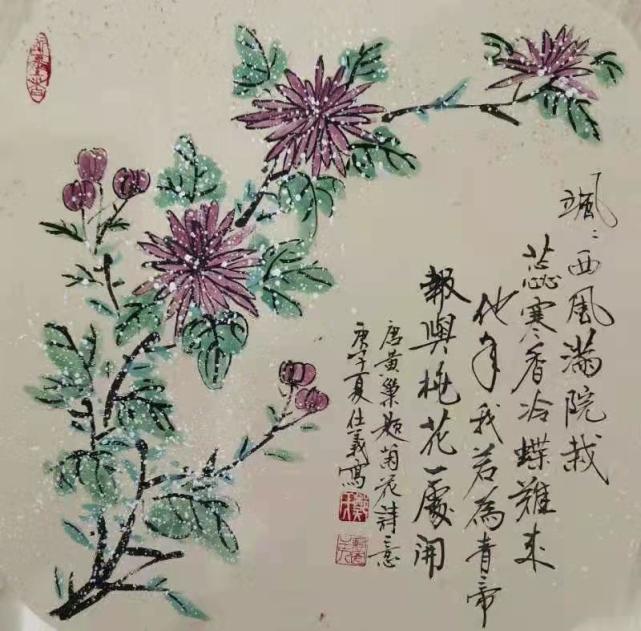 颯〻西風滿院栽
蕊寒香冷蝶難來
他年我若為青帝
報與桃花一處開
唐黃巢題菊花詩意
庚子夏仕義寫